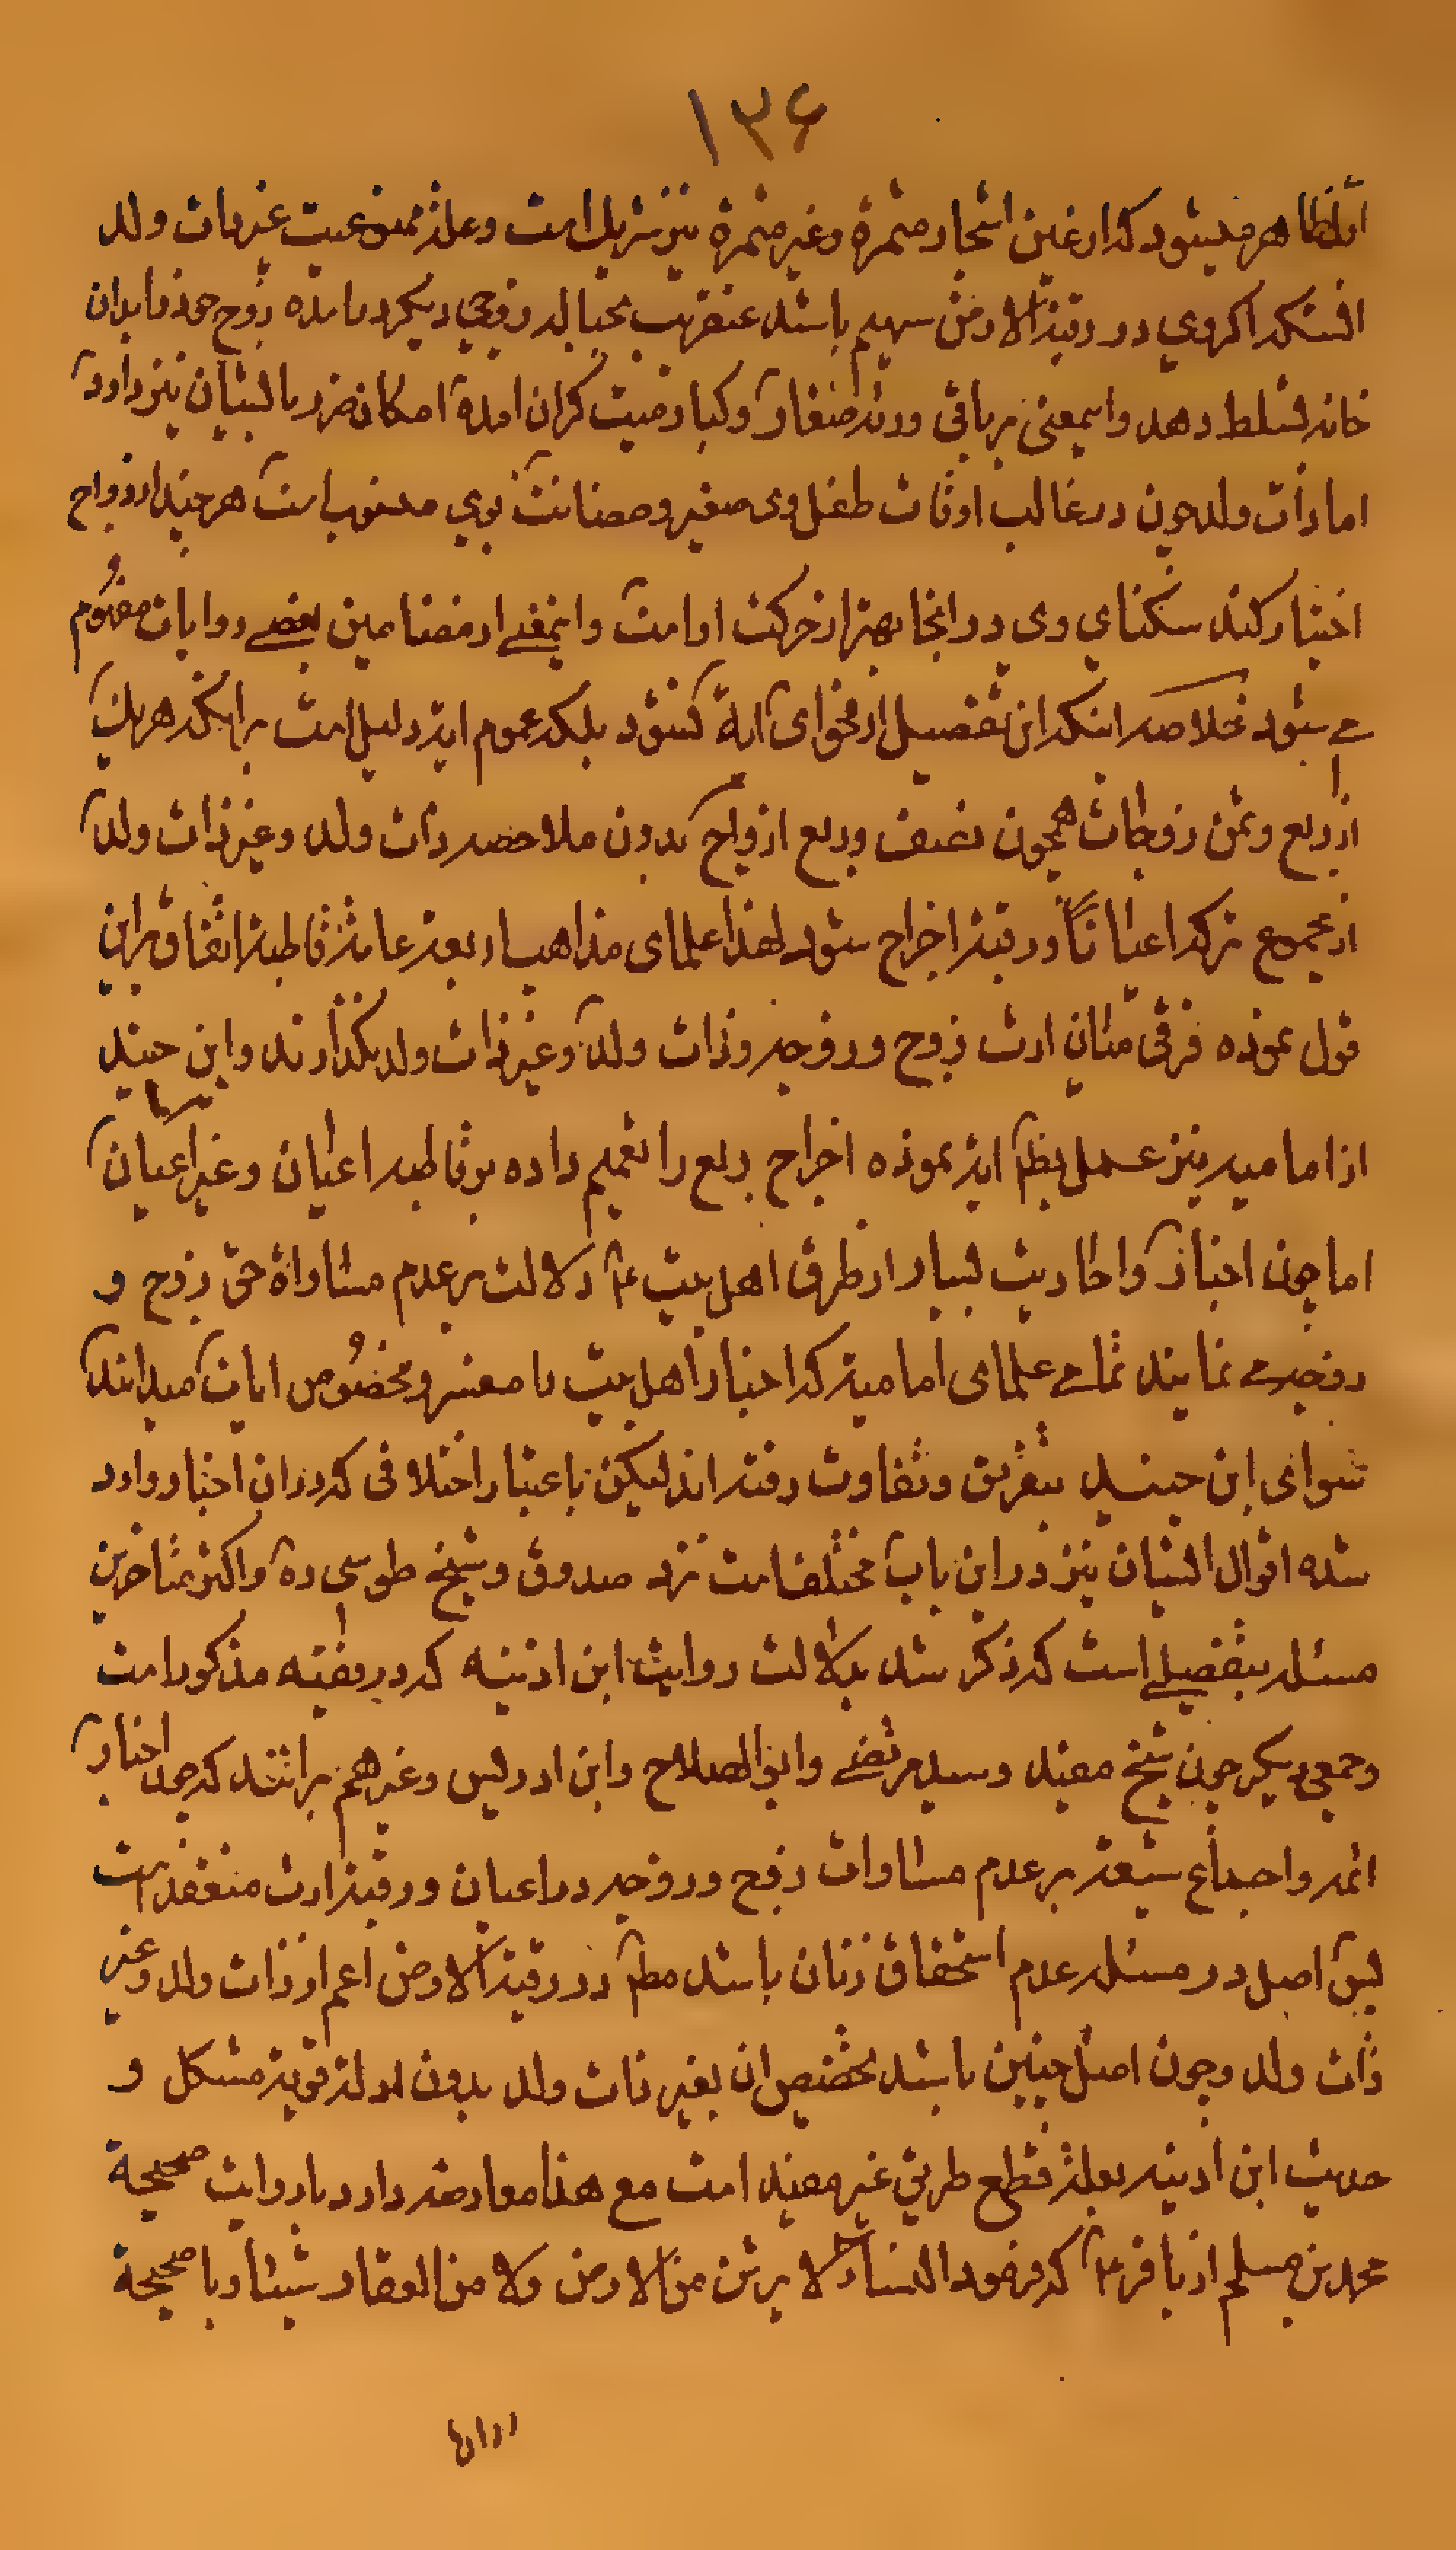 ۱۳۶
ظاهر میشود که از عین اشجار مثمرة و غیر مثمرة نیز شریک است و علة ممنوعیت غیر ذات ولد
آنستکه اگر وی در رقبة الارض سهیم باشد عنقریب بحباله زوجی دیگر درآمده زوج خود را بران
خانه تسلط دهد و اینمعنی بر باقی ورثه صغار و کبار میت گران آمده امکان ضرر بایشان نیز دارد
اما ذات ولد چون در غالب اوقات طفل وی صغیر و حضانتش بوی منسوب است هر چند ازدواج
اختیار کند سکنای وی در انجا بهتر از حرکت او است و اینمعنی از مضامین بعضی روایات مفهوم
می شود خلاصه اینکه این تفصیل از فحوای آیة نشود بلکه عموم ایة دلیل است بر اینکه هر یک
از ربع و ثمن زوجات همچون نصف و ربع ازواج بدون ملاحظه ذات ولد و غیر ذات ولد
از مجموع ترکه اعیاناً و رقبة اخراج شود لهذا علمای مذاهب اربعه عامة قاطبة اتفاق براین
قول نموده فرقی میان ارث زوج و زوجه و ذات ولد و غیر ذات ولد نگذارند و ابن جنید
از امامیه نیز عمل بظ ایة نموده اخراج ربع را تعمیم داده بر قاطبه اعیان و غیر اعیان
اما چون اخبار و احادیث بسیار از طرق اهل بیت ع دلالت بر عدم مساواة حق زوج و
زوجه می نمایند تمامی علمای امامیة که اخبار اهل بیت را مفسر و مخصوص ایات میدانند
سوای ابن جنید بتفریق و تفاوت رفته اند لیکن باعتبار اختلافی که در ان اخبار وارد
شده اقوال ایشان نیز در این باب مختلف است نزد صدوق و شیخ طوسی ره و اکثر متاخرین
مسئله بتفصیلی است که ذکر شد بدلالت روایت ابن اذنیه که در فقیه مذکور است
و جمعی دیگر چون شیخ مفید و سید مرتضی و ابو الصلاح و ابن ادریس و غیرهم برانند که چون اخبار
ائمه و اجماع شیعه بر عدم مساوات زوج و زوجه در اعیان و رقبة ارث منعقد است
پس اصل در مسئله عدم استحقاق زنان باشد مط در رقبة الارض اعم از ذات ولد و غیر
ذات ولد و چون اصل چنین باشد تخصیص ان بغیر ذات ولد بدون ادلة قویة مشکل و
حدیث ابن اذنیه بعلة قطع طریق غیر مفید است مع هذا معارضه دارد با روایت صحیحة
محمد بن مسلم از باقر ع که فرمود النساء لا یرثن من الارض و لا من العقار شیئا و با صحیحة
زرارة